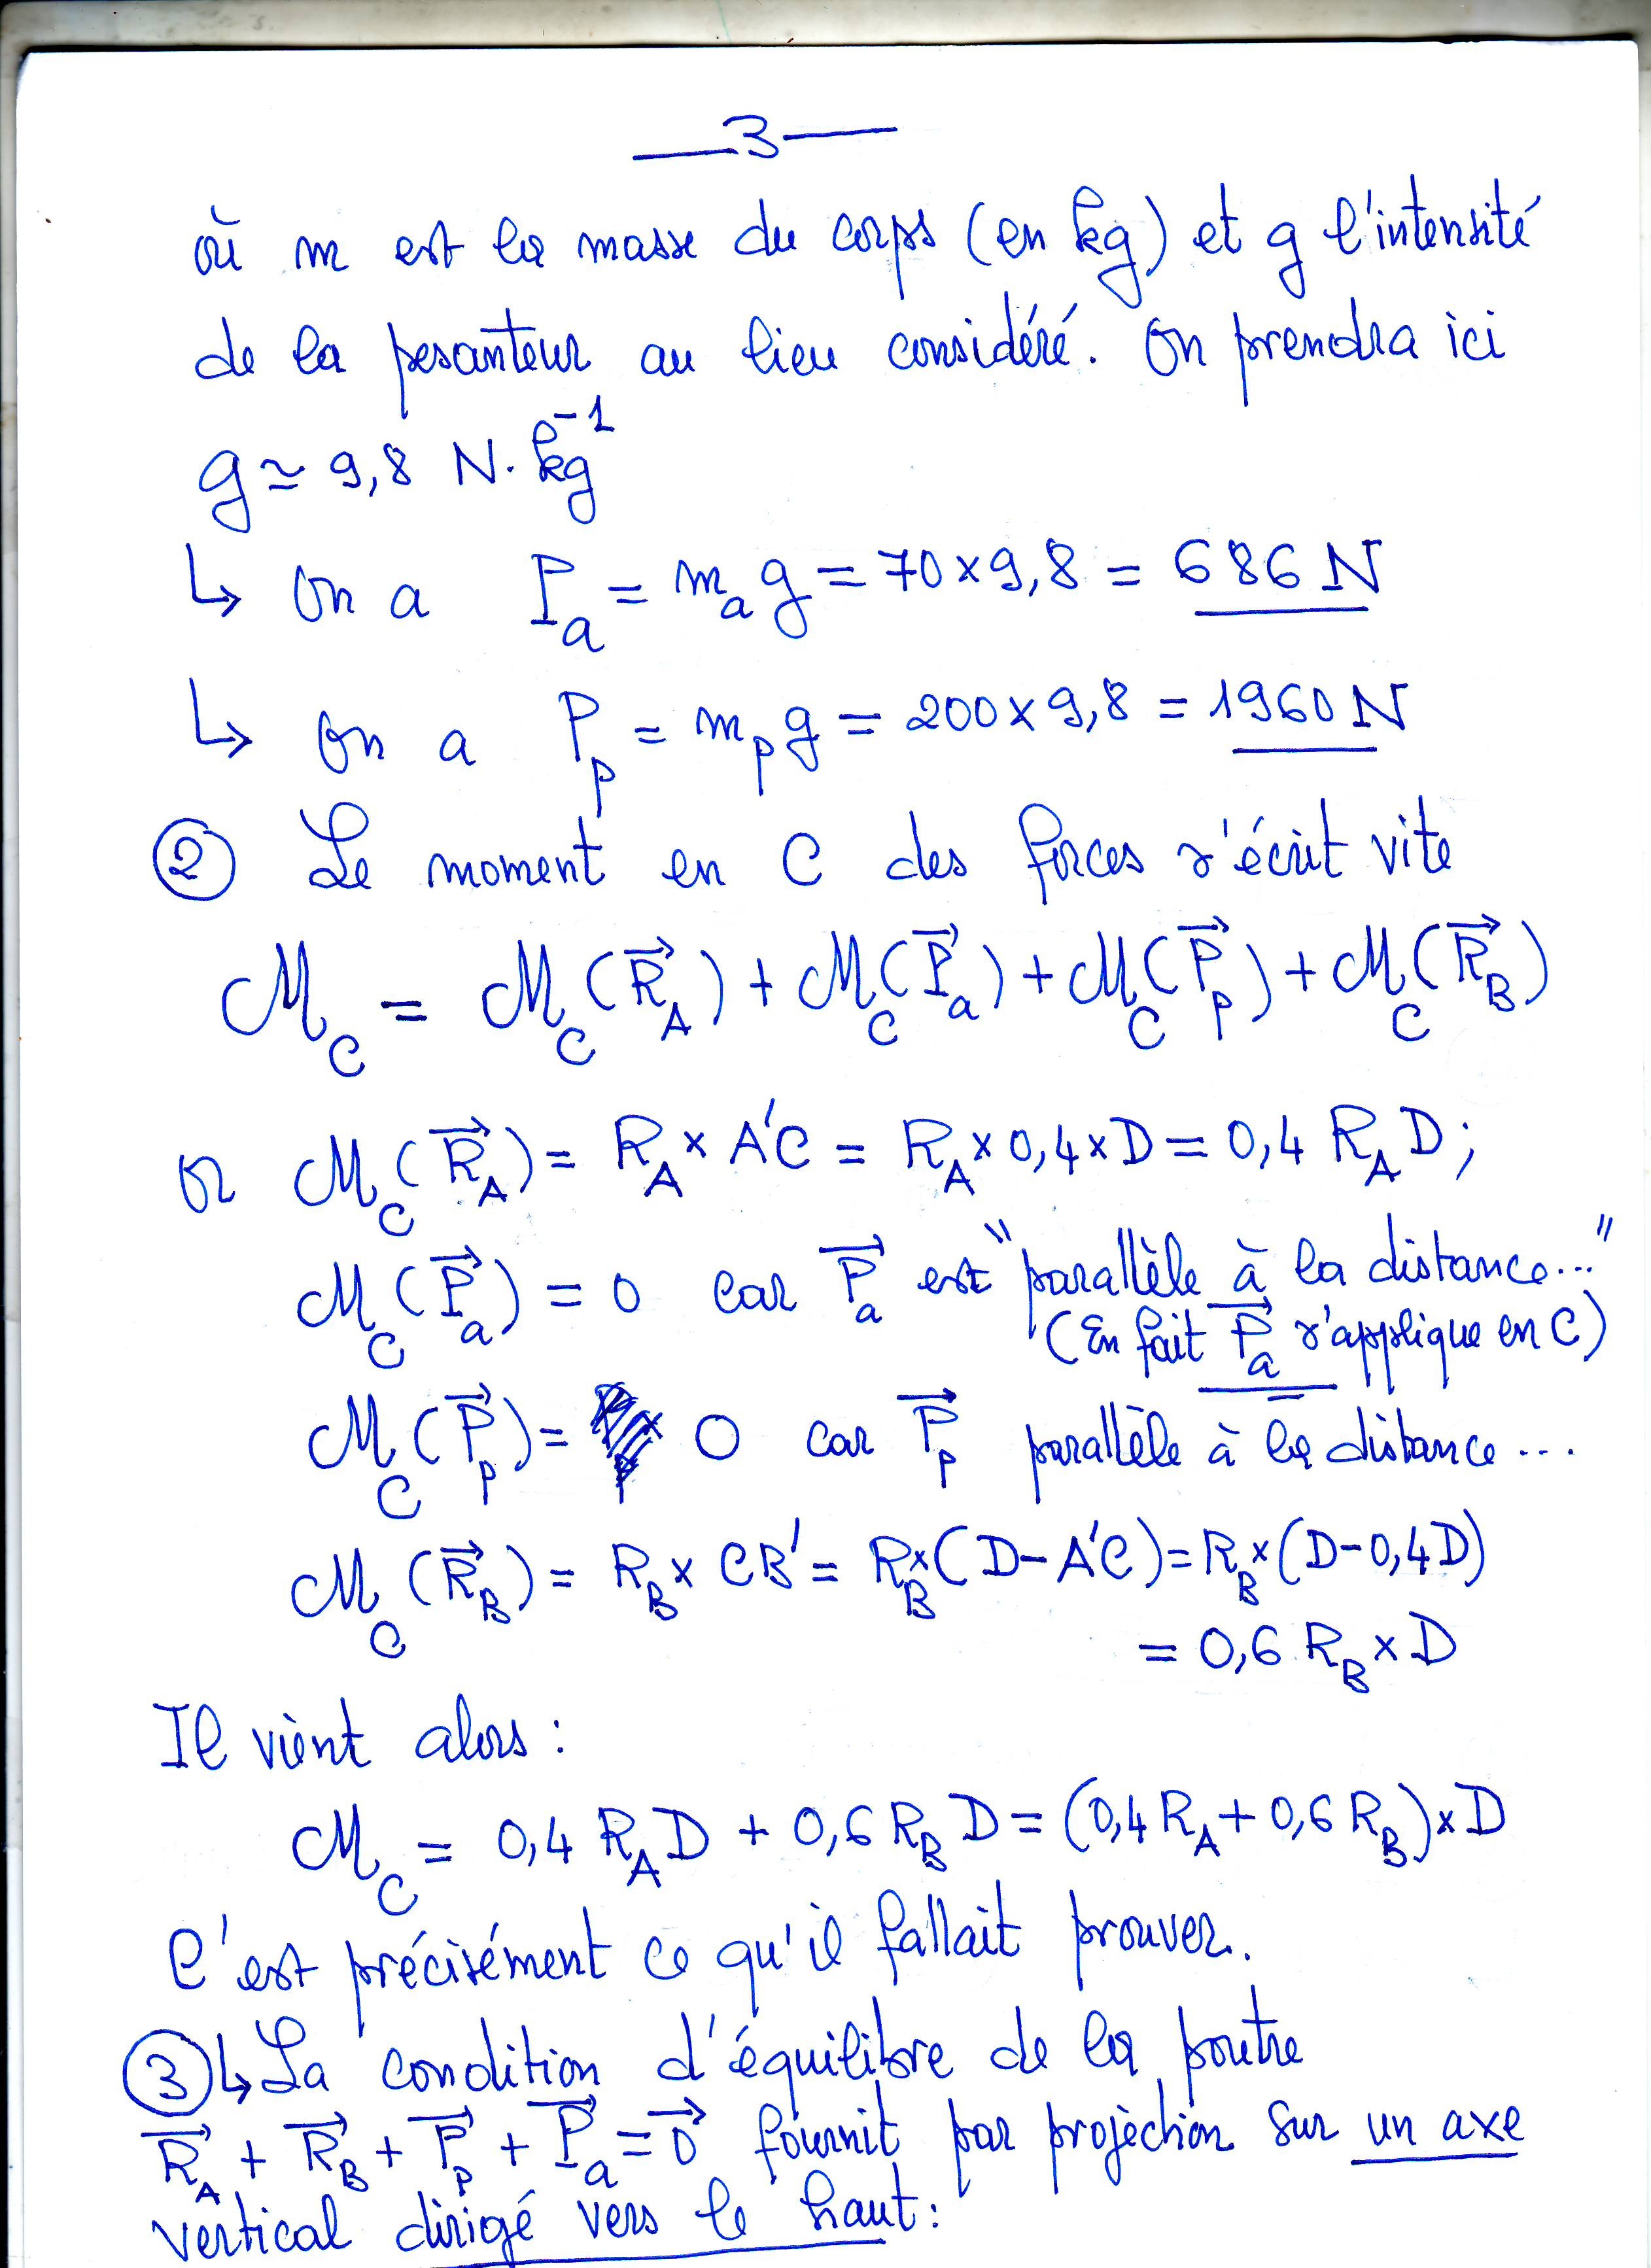 — 3 —
où m est la masse du corps (en kg) et g l'intensité
de la pesanteur au lieu considéré. On prendra ici
g ≃ 9,8 N·kg⁻¹
↳ On a P_a = m_a g = 70 × 9,8 = 686 N
↳ On a P_p = m_p g = 200 × 9,8 = 1960 N
② Le moment en C des forces s'écrit vite
ℳ_C = ℳ_C(R⃗_A) + ℳ_C(P⃗_a) + ℳ_C(P⃗_p) + ℳ_C(R⃗_B)
or ℳ_C(R⃗_A) = R_A × A'C = R_A × 0,4 × D = 0,4 R_A D ;
ℳ_C(P⃗_a) = 0 car P⃗_a est "parallèle à la distance..."
(En fait P⃗_a s'applique en C)
ℳ_C(P⃗_p) = 0 car P⃗_p parallèle à la distance ...
ℳ_C(R⃗_B) = R_B × CB' = R_B × (D - A'C) = R_B × (D - 0,4D)
= 0,6 R_B × D
Il vient alors :
ℳ_C = 0,4 R_A D + 0,6 R_B D = (0,4 R_A + 0,6 R_B) × D
C'est précisément ce qu'il fallait prouver.
③ ↳ La condition d'équilibre de la poutre
R⃗_A + R⃗_B + P⃗_p + P⃗_a = 0⃗ fournit par projection sur un axe
vertical dirigé vers le haut :